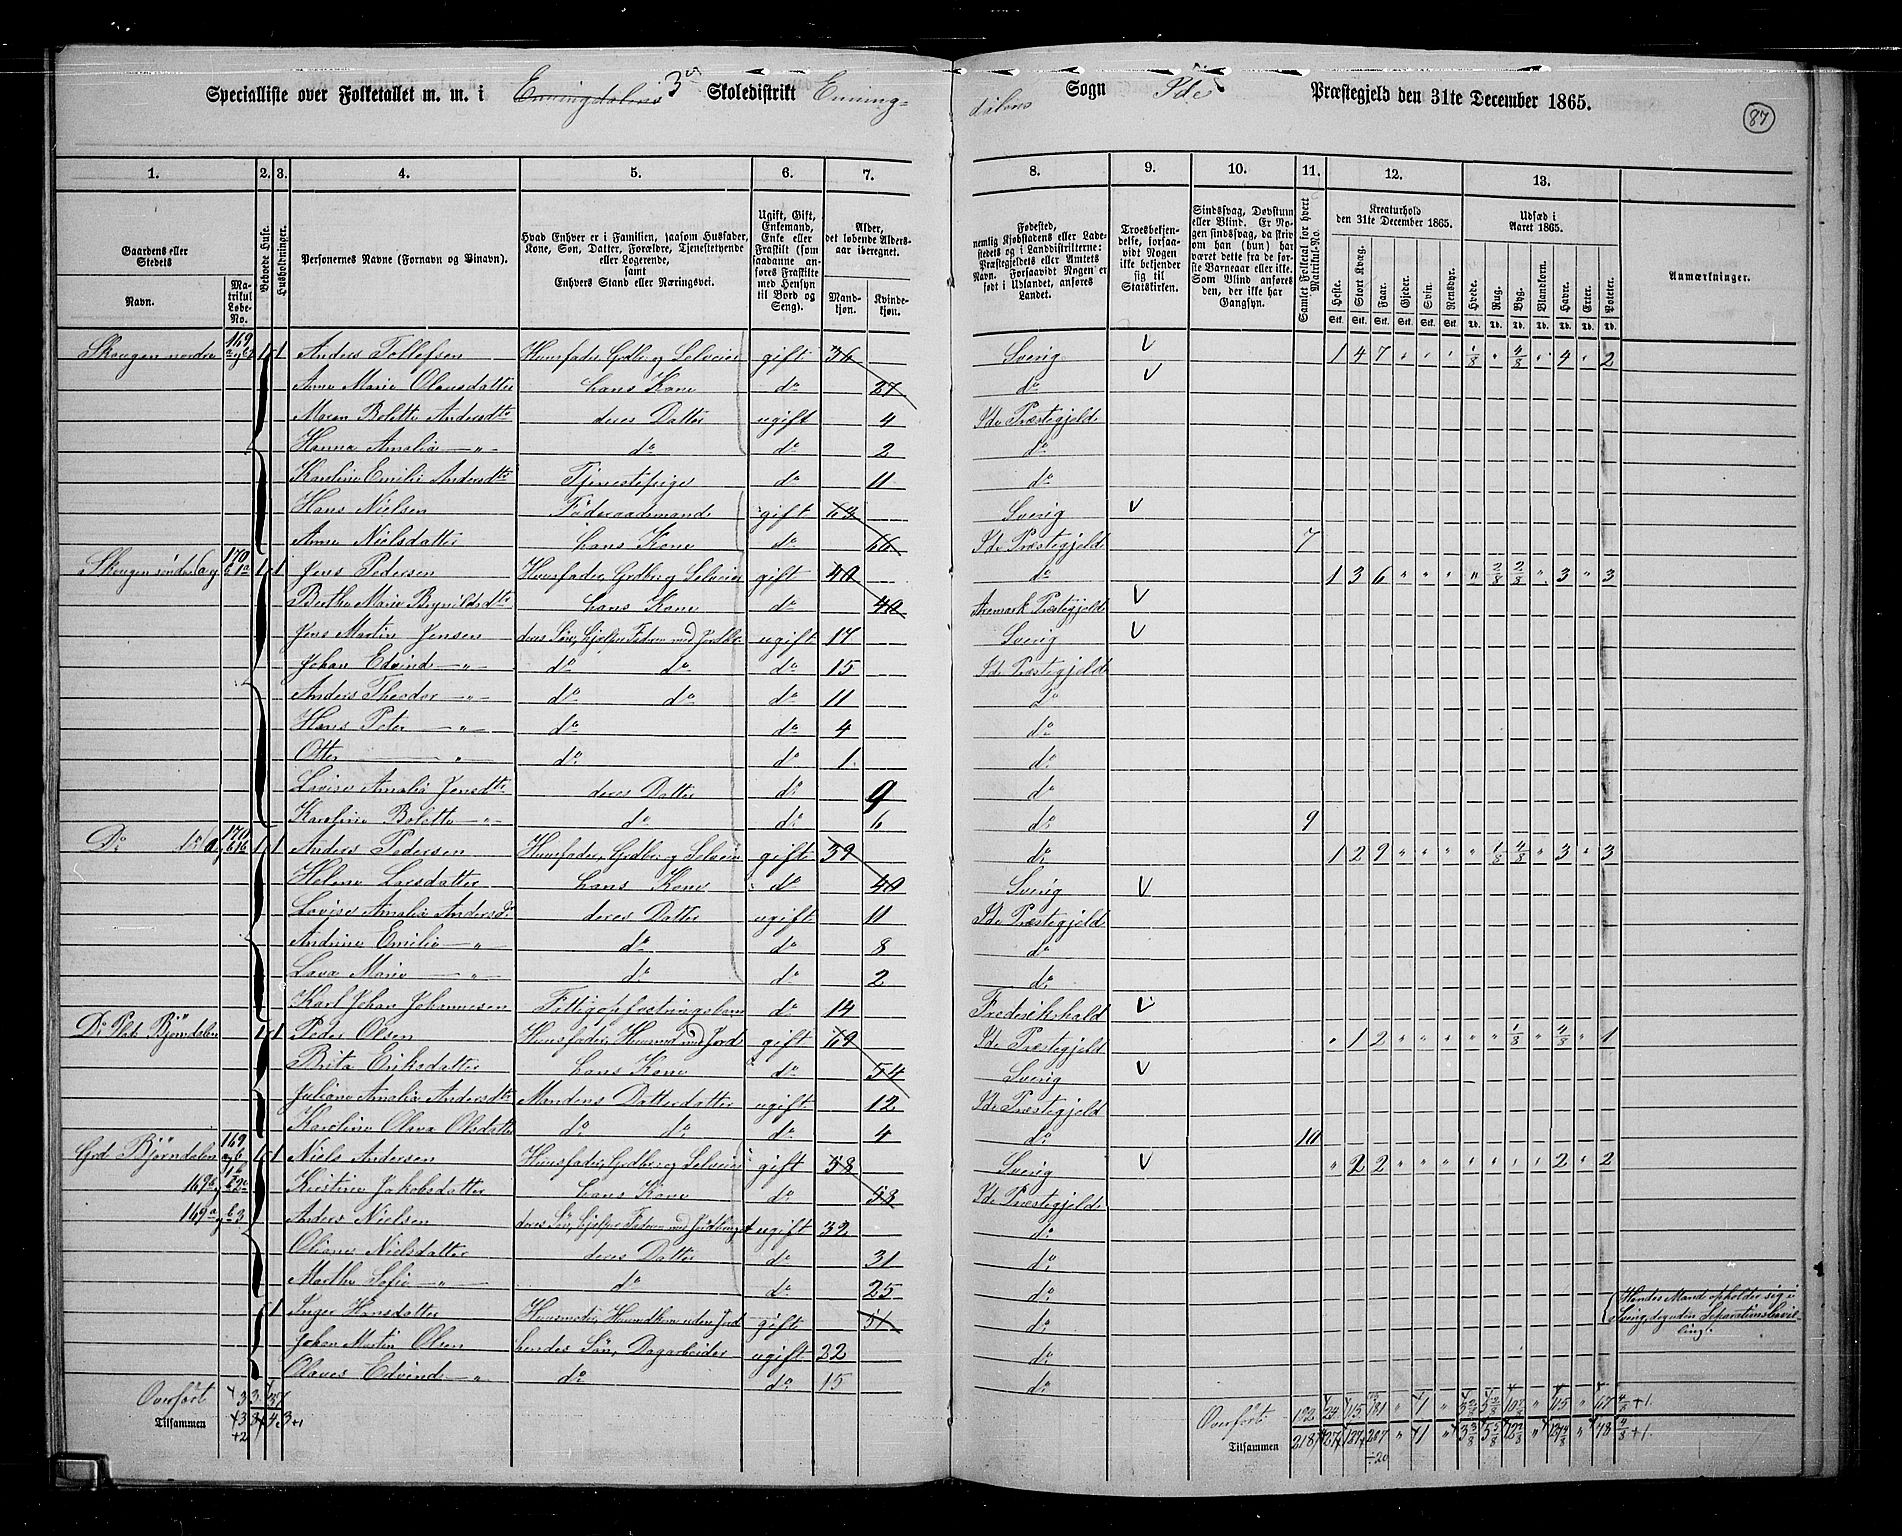 Specialliste over Folketallet m. m. i Enningdalens 3die Skoledistrikt Enning-
dalens Sogn Ide Præstegjeld den 31te December 1865.
87
1. 2. 3. 4. 5. 6. 7. 8. 9. 10. 11. 12. 13.
Gaardens eller Stedets
Navn.
Matrikul Løbe-No.
Beboede Huse.
Husholdninger.
Personernes Navne (Fornavn og Binavn).
Hvad Enhver er i Familien, saasom Husfader, Kone, Søn, Datter, Forældre, Tjenestetyende eller Logerende, samt Enhvers Stand eller Næringsvei.
Ugift, Gift, Enkemand, Enke eller Fraskilt (som saadanne anføres Fraskilte med Hensyn til Bord og Seng).
Alder, det løbende Aldersaar iberegnet.
Mandkjøn.
Kvindekjøn.
Fødested, nemlig Kjøbstadens eller Ladestedets og i Landdistrikterne: Præstegjeldets eller Amtets Navn. Forsaavidt Nogen er født i Udlandet, anføres Landet.
Troesbekjendelse, forsaavidt Nogen ikke bekjender sig til Statskirken.
Sindssvag, Døvstum eller Blind. Er Nogen sindssvag, da skrives om han (hun) har været dette fra de første Barneaar eller ikke. Som Blind anføres den, der ikke har Gangsyn.
Samlet Folketal for hvert Matrikul-No.
Kreaturhold den 31te December 1865.
Heste. Stort Kvæg. Faar. Gjeder. Svin. Rensdyr.
Udsæd i Aaret 1865.
Hvede. Rug. Byg. Blandkorn. Havre. Erter. Poteter.
Anmærkninger.
Skougen nordre 169 1 1 Anders Tollefsen Huusfader, Grdbr. og Selveier gift 36 Sverig 1 4 7 " " " 1/8 " 4/8 " 4 " 2
Anne Marie Olausdatter hans Kone do 27 do
Maren Bolette Andersdtr deres Datter ugift 4 Ide Præstegjeld
Hanna Amalia — " — do do 2 do
Karoline Emilie Andersdtr Tjenestepige do 11 do
Hans Nielsen Føderaadsmand gift 68 Sverig
Anne Nielsdatter hans Kone do 66 Ide Præstegjeld 7
Skougen søndre 170 1 1 Jens Pedersen Huusfader, Grdbr. og Selveier gift 40 do 1 3 6 " " " " 2/8 2/8 " 3 " 3
Berthe Marie Brynildsdtr hans Kone do 40 Aremark Præstegjeld
Jens Martin Jensen deres Søn, hjelper Faderen med Jordbr. ugift 17 Sverig
Johan Edvind — " — do do do 15 Ide Præstegjeld
Anders Theodor — " — do do do 11 do
Hans Peter — " do do 4 do
Otto — " do do 1 do
Lovise Amalia Jensdtr deres Datter do 9 do
Karoline Bolette — " — do do 6 do 9
Do 170 1 1 Anders Pedersen Huusfader, Grdbr. og Selveier gift 39 do 1 2 9 " " " " 1/8 4/8 " 3 " 3
Helene Larsdatter hans Kone do 40 Sverig
Lovise Amalia Andersdtr deres Datter ugift 11 Ide Præstegjeld
Andrine Emilie — " do do 8 do
Lava Marie — " do do 2 do
Karl Johan Johannesen Fattigopfostringsbarn do 14 Frederikshald
Do Plds Bjørndalen 1 1 Peder Olsen Huusfader, Huusmd med Jord gift 69 Ide Præstegjeld " 1 2 " " " " " 1/8 " 4/8 " 1
Brita Eriksdatter hans Kone do 54 Sverig
Juliane Amalia Andersdtr Mandens Datterdatter ugift 12 Ide Præstegjeld
Karoline Olava Olsdatter do do do 4 do 10
Grd Bjørndalen 169 1 1 Niels Andersen Huusfader, Grdbr. og Selveier gift 58 Sverig " 2 2 " " " " " " " 2 " 2
Kristine Jakobsdatter hans Kone do 58 Ide Præstegjeld
Anders Nielsen deres Søn, hjelper Faderen med Jordbruget ugift 32 do
Oliane Nielsdatter deres Datter do 31 do
Marthe Sofie — " — do do 25 do
1 Inger Hansdatter Huusmoder, Huusmdkone uden Jord gift 51 do Hendes Mand opholder sig i Sverig, dog uden Separationsbevilling.
Johan Martin Olsen hendes Søn, Dagarbeider ugift 22 do
Olaves Edvind — " do do 15 do
Overført
Tilsammen
Overført
Tilsammen